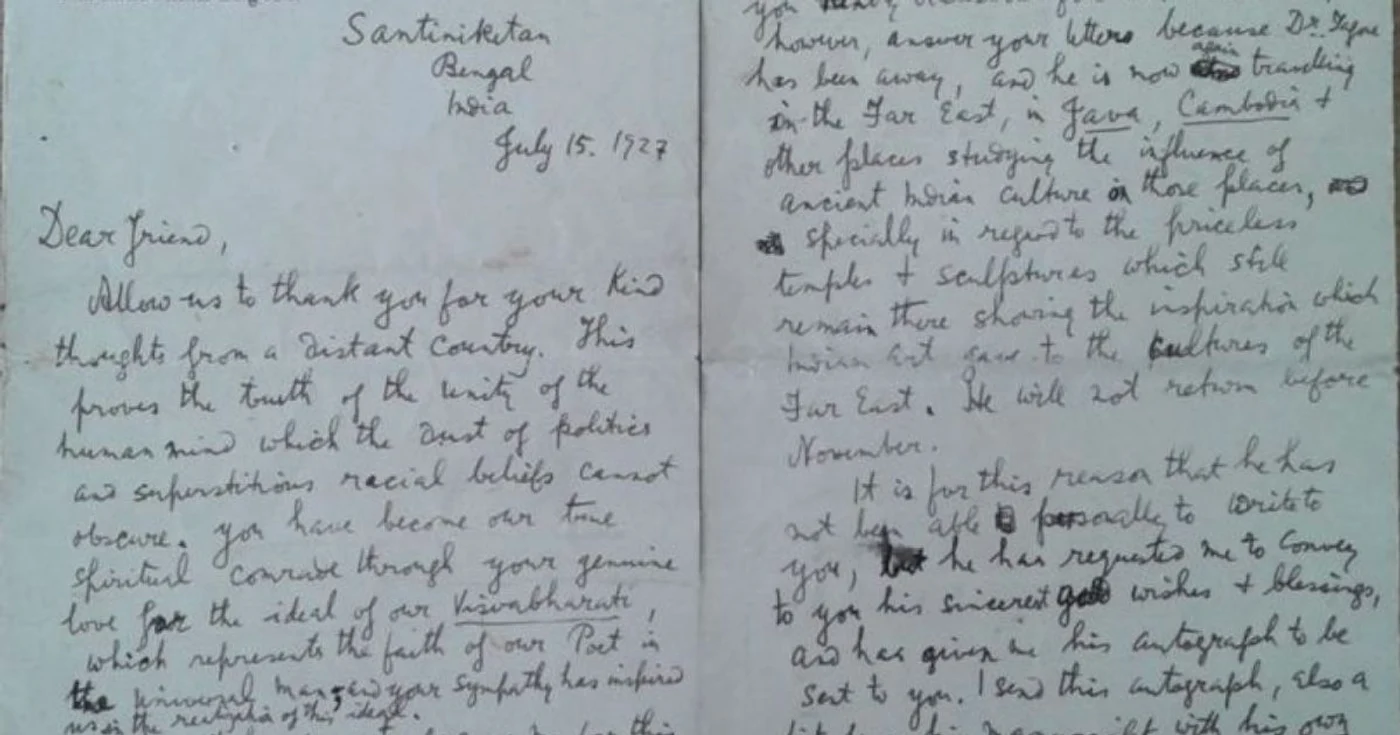 Santiniketan
Bengal
India
July 15. 1927
Dear Friend,
Allow us to thank you for your kind
thoughts from a distant country. This
proves the truth of the unity of the
human mind which the dust of politics
and superstitious racial beliefs cannot
obscure. you have become our true
spiritual comrade through your genuine
love for the ideal of our Visvabharati,
which represents the faith of our Poet in
the universal man, and your sympathy has inspired
us in the realisation of this ideal.
this
you
however, answer your letters because Dr. Tagore
has been away, and he is now again travelling
in the Far East, in Java, Cambodia +
other places studying the influence of
ancient Indian culture in those places,
specially in regard to the priceless
temples + sculptures which still
remain there showing the inspiration which
Indian art gave to the cultures of the
Far East. He will not return before
November.
It is for this reason that he has
not been able personally to write to
you, but he has requested me to convey
to you his sincerest good wishes + blessings,
and has given me his autograph to be
sent to you. I send this autograph, also a
with his own